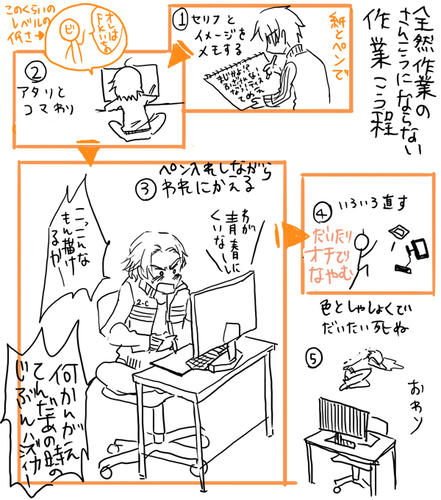 全然作業の
さんこうにならない
作業こう程
①セリフと
イメージを
メモする
紙とペンで
このくらいの
レベルの
何さ→
②
アタリと
コマわり
ペン入れしながら
③われにかえる
わが
青春に
くいなーし
こっこんな
もん描け
るか
何かんがえ
てんだあの時の
じぶんバカー
④いろいろ直す
だいたい
オチで
なやむ
色としゃしょくで
だいたい死ぬ
⑤
おわり
2-C